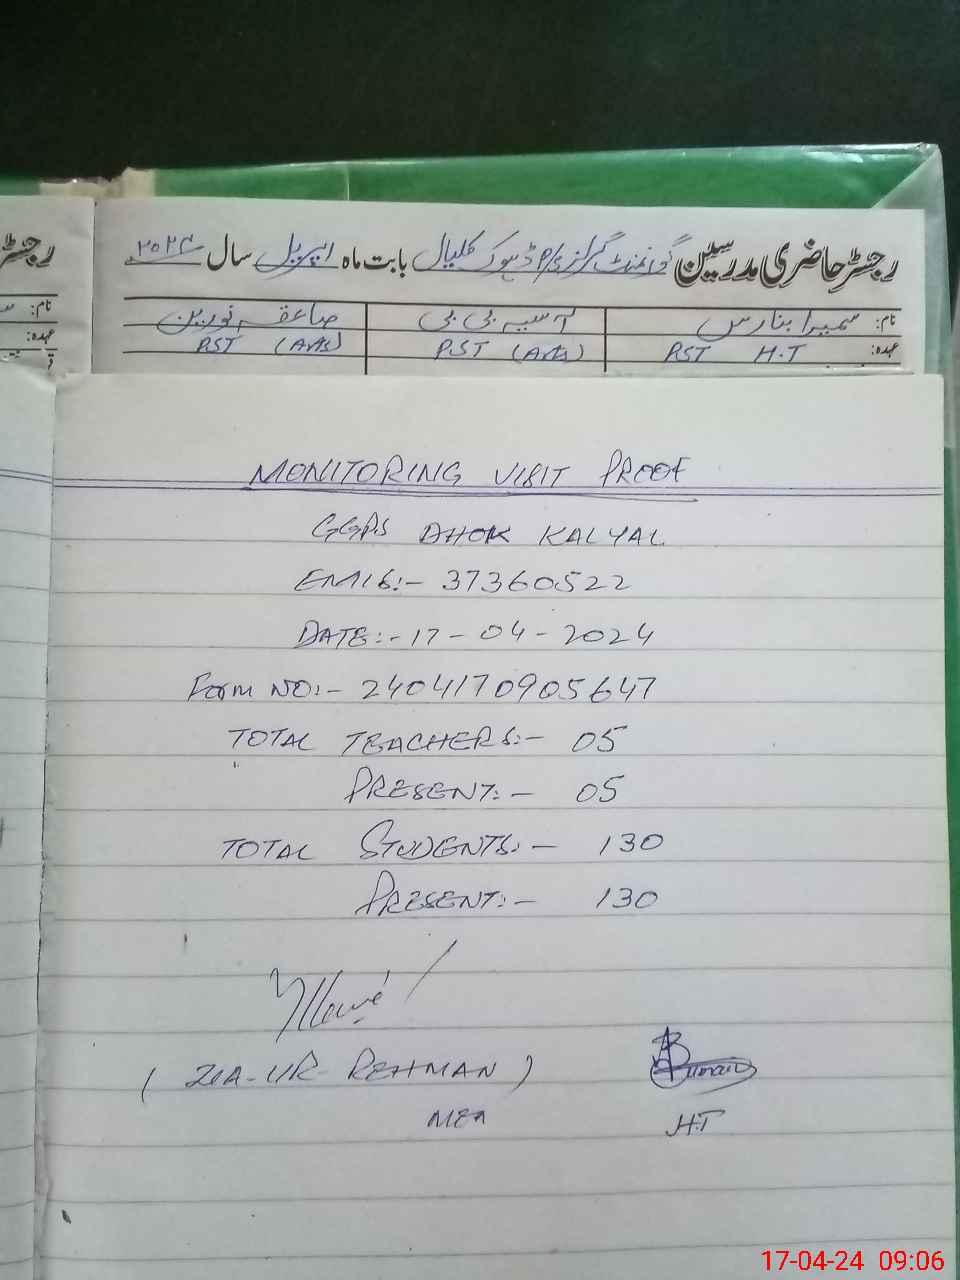 رجسٹر حاضری مدرسین گورنمنٹ گرلز پ/س ڈہوک کلیال بابت ماہ اپریل سال ۲۰۲۴
نام: سمیرا بنارس آسیہ بی بی صاعقہ نورین
عہدہ: PST H.T PST (Arts) PST (Arts)
MONITORING VISIT PROOF
GGPS DHOK KALYAL
EMIS:- 37360522
DATE:- 17-04-2024
Form NO:- 2404170905647
TOTAL TEACHERS:- 05
PRESENT:- 05
TOTAL STUDENTS:- 130
PRESENT:- 130
(ZIA-UR-REHMAN)
MEA H.T
17-04-24 09:06